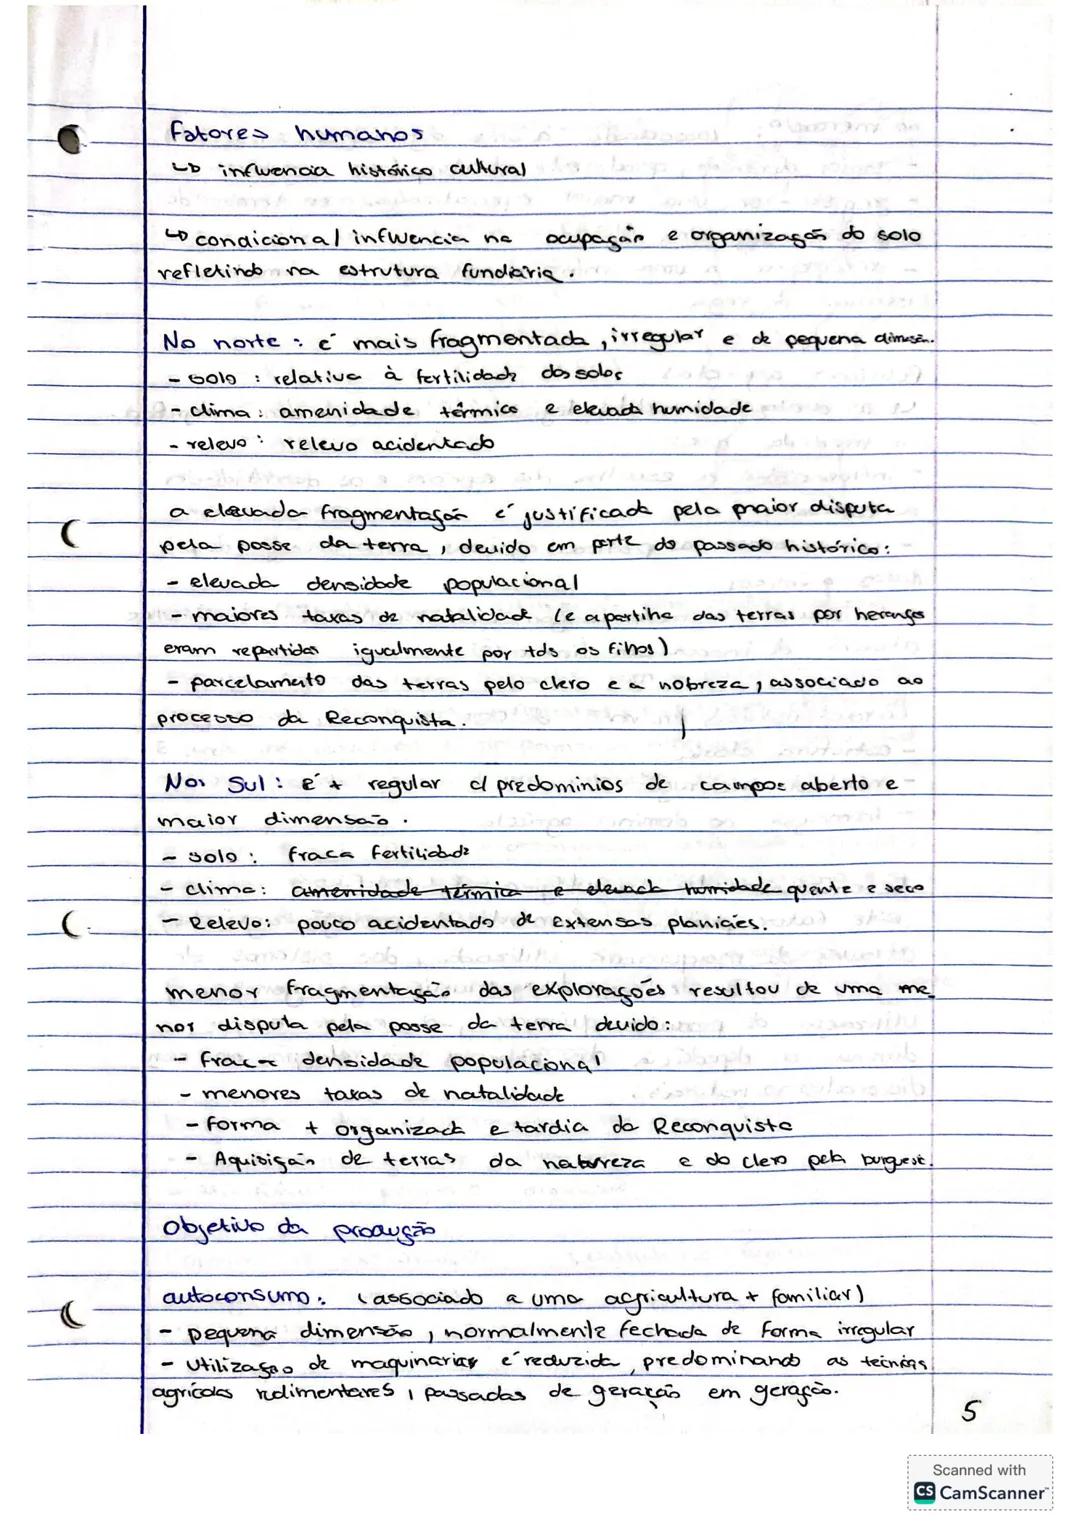 Fatores humanos
↳ influencia histórico cultural
↳ condiciona / influencia na ocupação e organização do solo
refletindo na estrutura fundiária.
No norte: é mais fragmentada, irregular e de pequena dimesã.
- solo: relativa à fertilidade dos solos
- clima: amenidade térmica e elevada humidade
- relevo: relevo acidentado
a elevada fragmentação é justificada pela maior disputa
pela posse da terra, devido em parte do passado histórico:
- elevada densidade populacional
- maiores taxas de natalidade (e a partilha das terras por heranças
eram repartidas igualmente por tds os filhos)
- parcelamento das terras pelo clero e a nobreza, associado ao
processo da Reconquista.
No Sul: é + regular c/ predominios de campos aberto e
maior dimensão.
- solo: fraca fertilidade
- clima: amenidade térmica e elevada humidade quente e seco
- Relevo: pouco acidentado de extensas planicies.
menor fragmentação das explorações resultou de uma me_
nor disputa pela posse da terra devido:
- fraca densidade populacional
- menores taxas de natalidade
- forma + organizada e tardia da Reconquista
- Aquisição de terras da natureza e do clero pela burguesi.
Objetivo da produção
autoconsumo: (associado a uma agricultura + familiar)
- pequena dimensão, normalmente fechada de forma irregular
- utilização de maquinarias é reduzida, predominando as tecnicas
agricolas rudimentares, passadas de geração em geração.
5
Scanned with
CS CamScanner